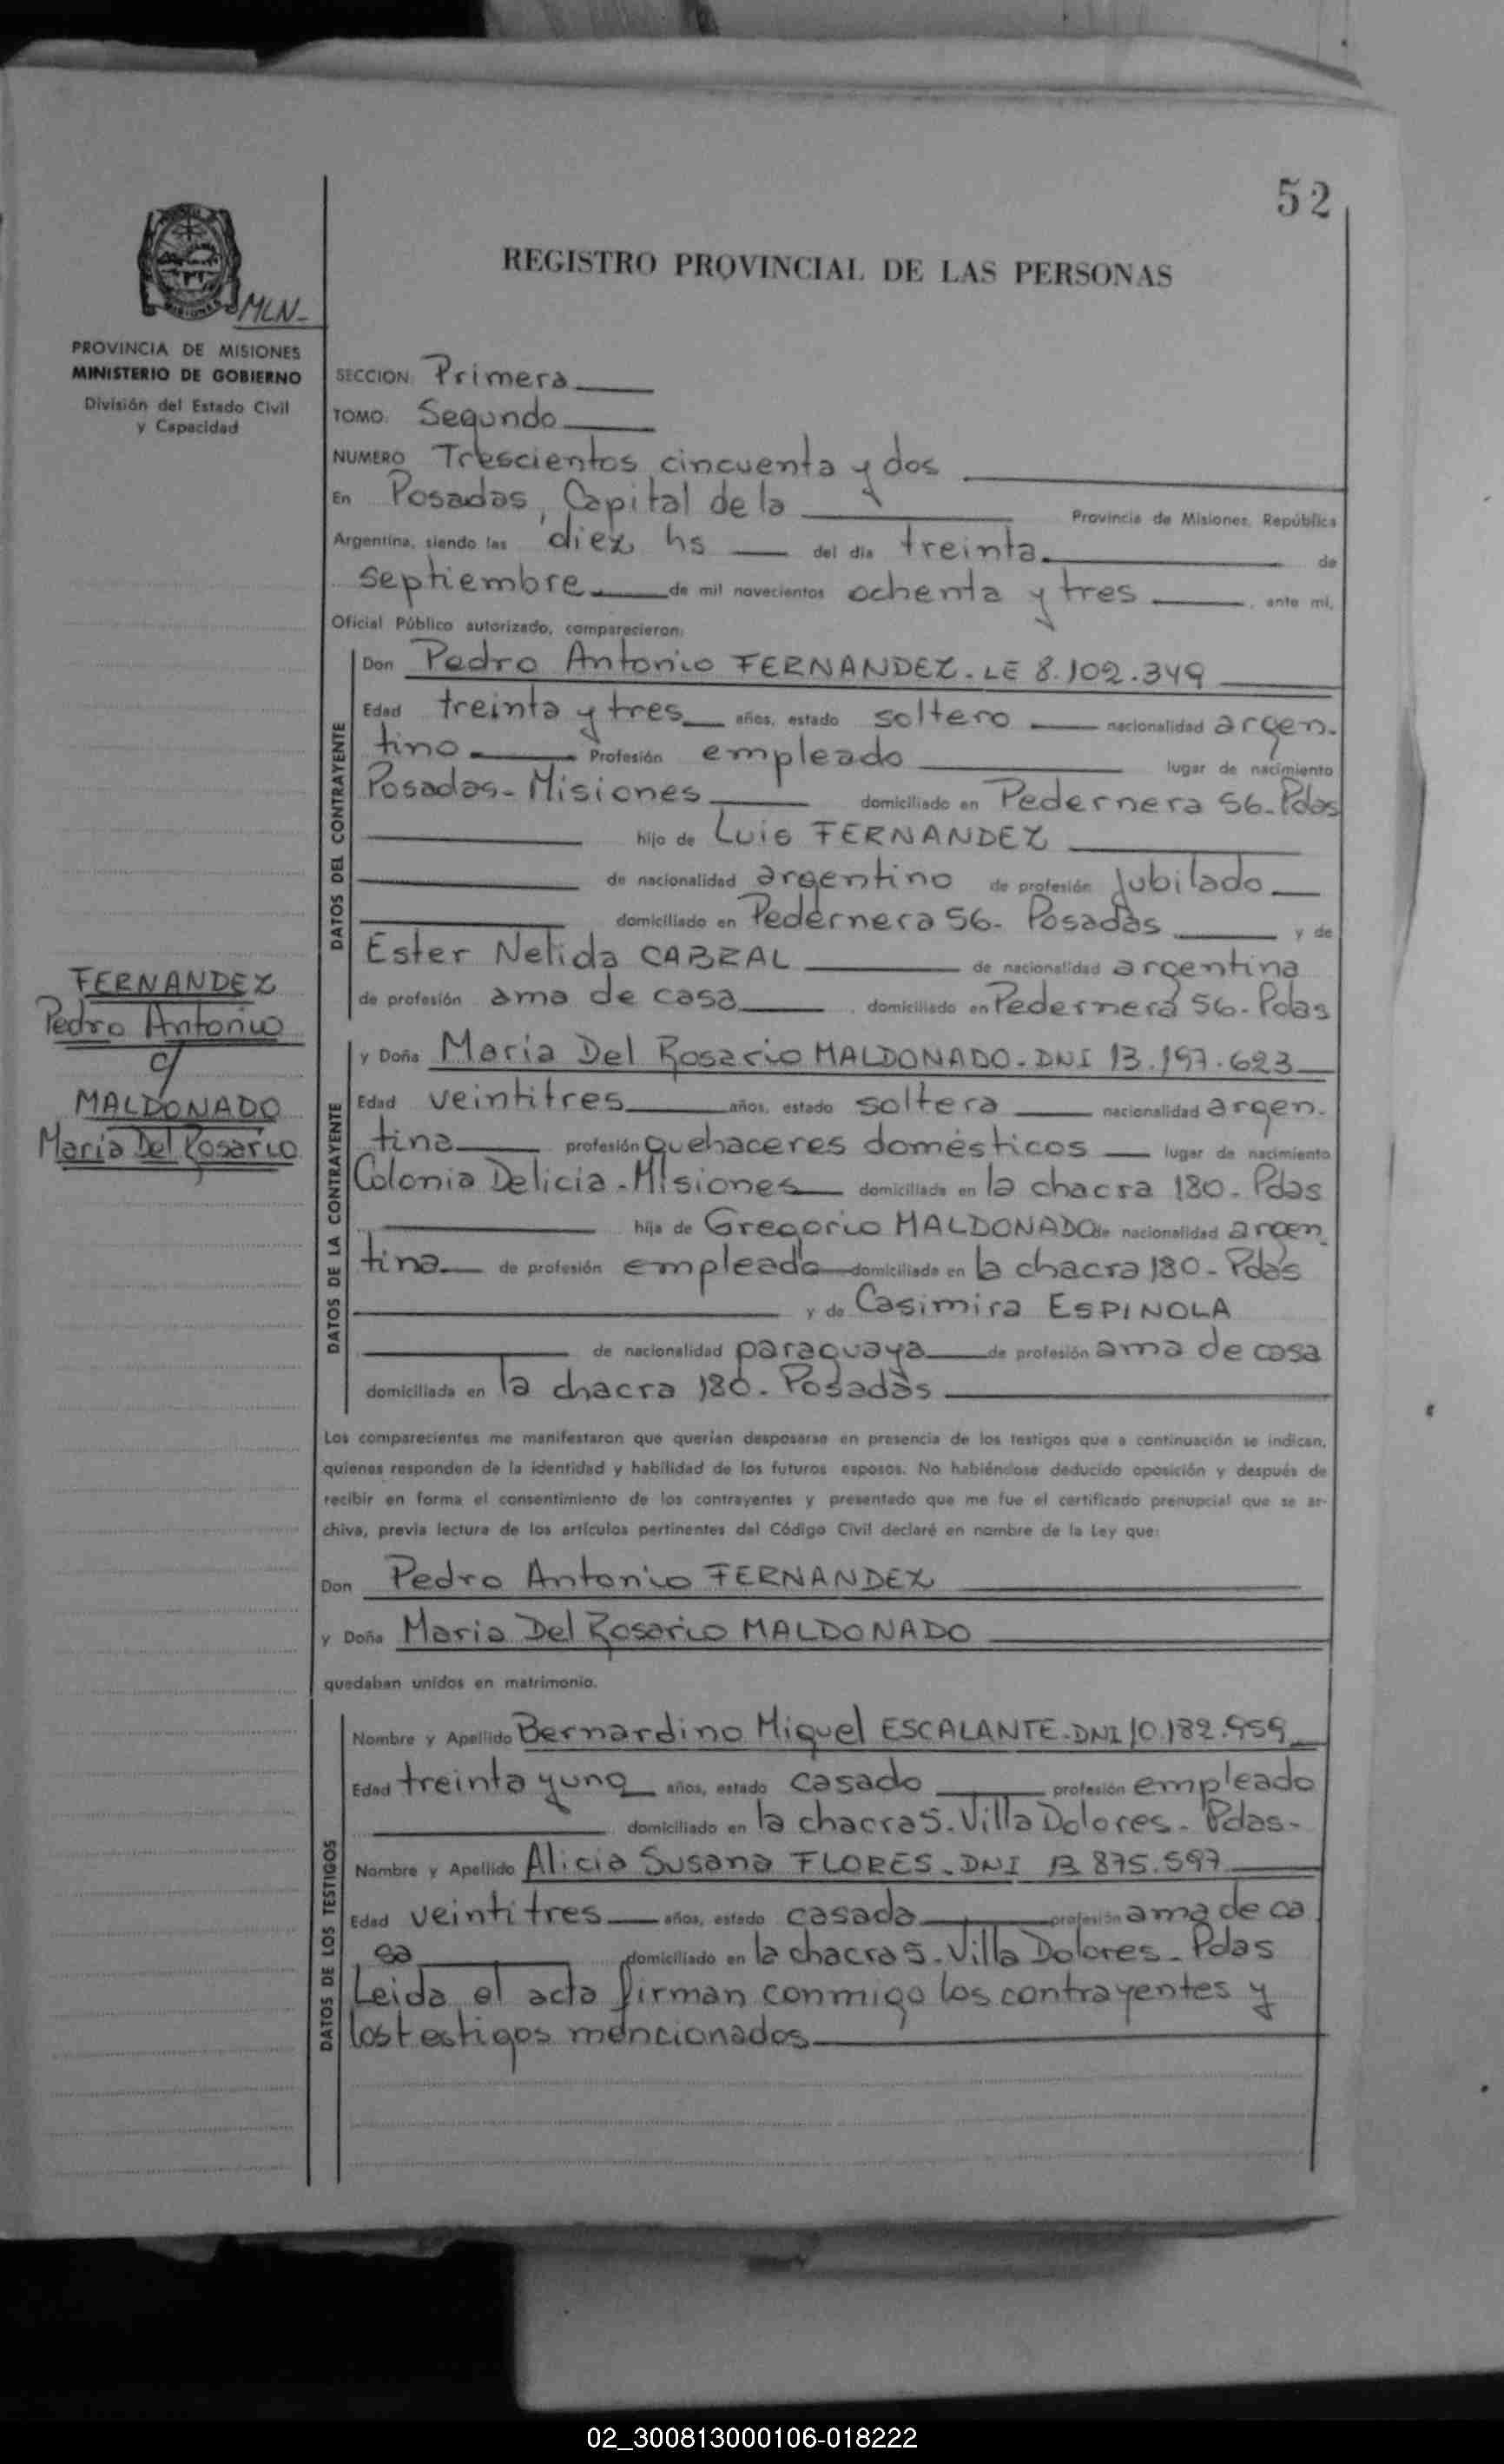 52
REGISTRO PROVINCIAL DE LAS PERSONAS
MISIONES
MLN-
PROVINCIA DE MISIONES
MINISTERIO DE GOBIERNO
División del Estado Civil
y Capacidad
SECCION: Primera
TOMO: Segundo
NUMERO Trescientos cincuenta y dos
En Posadas, Capital de la Provincia de Misiones, República
Argentina, siendo las diez hs del día treinta de
septiembre de mil novecientos ochenta y tres, ante mí,
Oficial Público autorizado, comparecieron:
DATOS DEL CONTRAYENTE
Don Pedro Antonio FERNANDEZ. LE 8.102.349
Edad treinta y tres años, estado soltero nacionalidad argen-
tino Profesión empleado lugar de nacimiento
Posadas- Misiones domiciliado en Pedernera 56-Pdas
hijo de Luis FERNANDEZ
de nacionalidad argentino de profesión Jubilado
domiciliado en Pedernera 56- Posadas y de
Ester Nelida CABRAL de nacionalidad argentina
de profesión ama de casa domiciliado en Pedernera 56-Pdas
FERNANDEZ
Pedro Antonio
c/
MALDONADO
María Del Rosario
DATOS DE LA CONTRAYENTE
y Doña María Del Rosario MALDONADO-DNI 13.197.623
Edad veintitres años, estado soltera nacionalidad argen-
tina profesión quehaceres domésticos lugar de nacimiento
Colonia Delicia-Misiones domiciliada en la chacra 180-Pdas
hija de Gregorio MALDONADO de nacionalidad argen
tina de profesión empleado domiciliado en la chacra 180-Pdas
y de Casimira ESPINOLA
de nacionalidad paraguaya de profesión ama de casa
domiciliada en la chacra 180-Posadas
Los comparecientes me manifestaron que querían desposarse en presencia de los testigos que a continuación se indican,
quienes responden de la identidad y habilidad de los futuros esposos. No habiéndose deducido oposición y después de
recibir en forma el consentimiento de los contrayentes y presentado que me fue el certificado prenupcial que se ar-
chiva, previa lectura de los artículos pertinentes del Código Civil declaré en nombre de la Ley que:
Don Pedro Antonio FERNANDEZ
y Doña María Del Rosario MALDONADO
quedaban unidos en matrimonio.
DATOS DE LOS TESTIGOS
Nombre y Apellido Bernardino Miguel ESCALANTE-DNI 10.182.959
Edad treinta y uno años, estado casado profesión empleado
domiciliado en la chacra 5-Villa Dolores-Pdas-
Nombre y Apellido Alicia Susana FLORES-DNI 13 875.597
Edad veintitres años, estado casada profesión ama de ca
sa domiciliado en la chacra 5-Villa Dolores-Pdas
Leida el acta firman conmigo los contrayentes y
los testigos mencionados
02_300813000106-018222